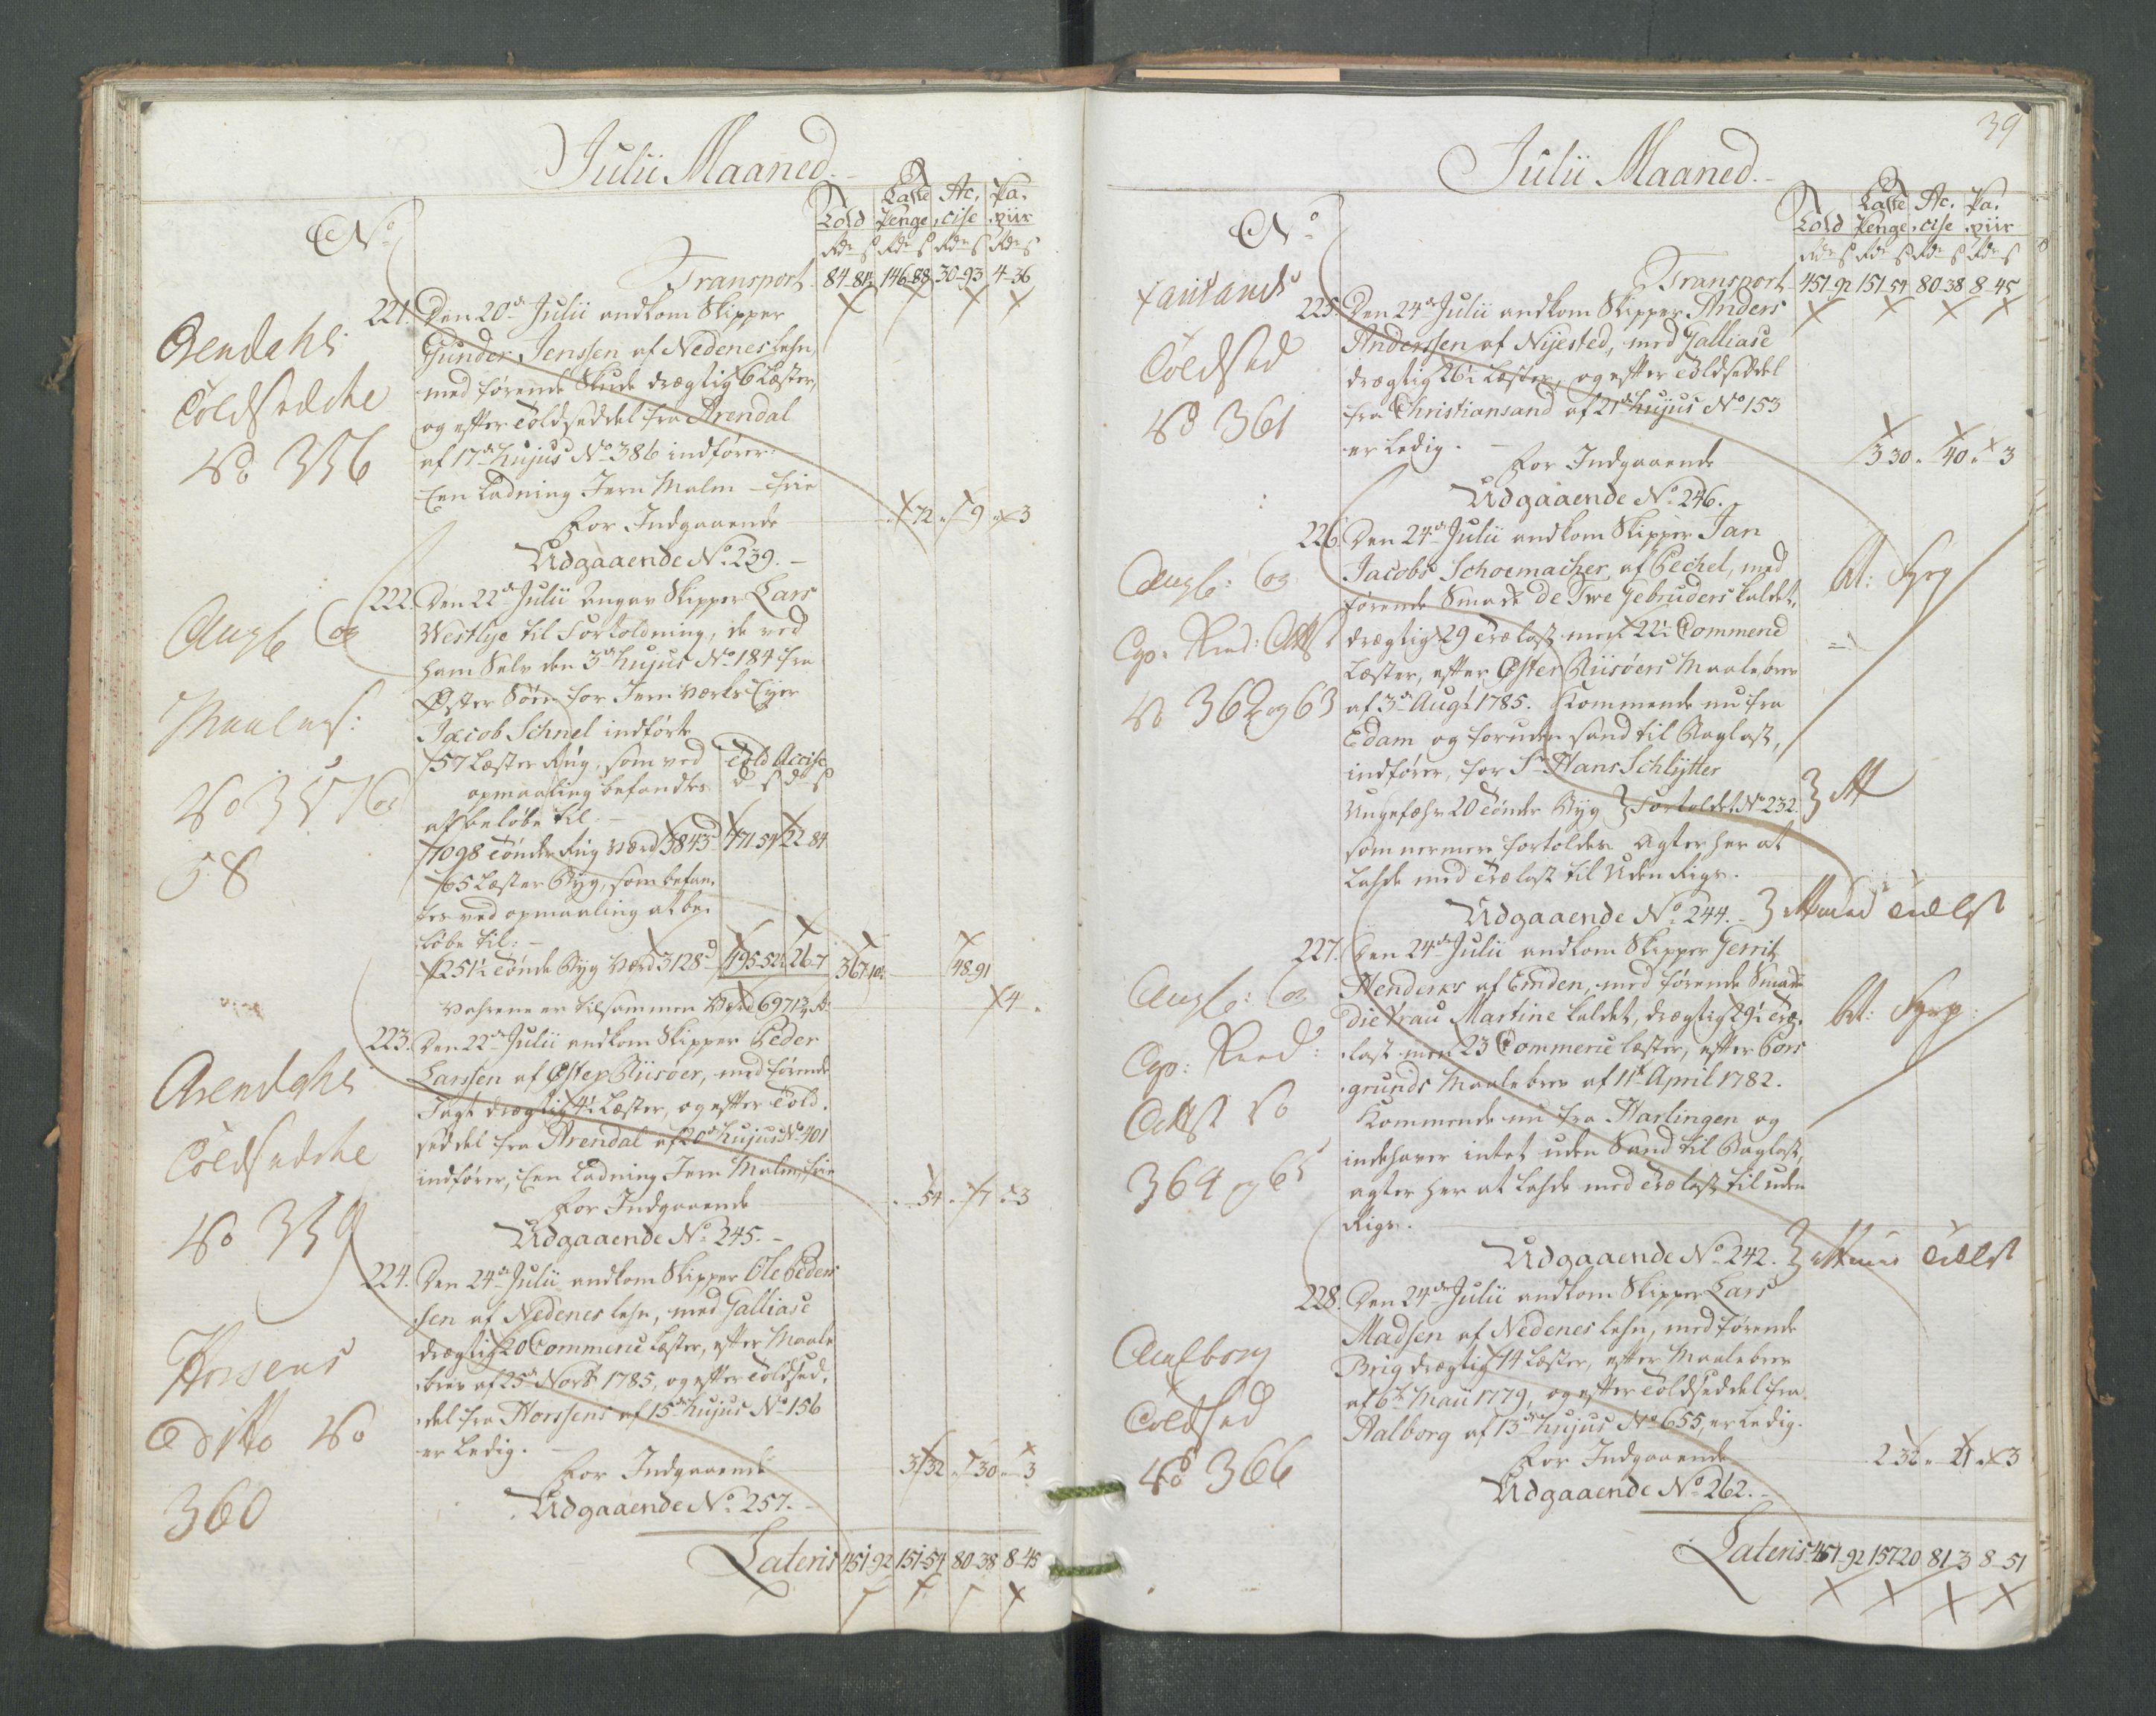 Julii Maaned.
No
Told
Laste Penge
Ac, cise
Pa, piir
Rdr s Rdr s Rdr s Rdr s
Transport 84-81½ 146-88 30-93 4-36
Arendahls
Toldsedle
No 356
221. Den 20de Julii ankom Skipper
Gunder Jenssen af Nedenes lehn,
med førende Skude drægtig 6 Læster,
og efter Toldseddel fra Arendal
af 17de hujus No 386 indfører:
Een Ladning Jern Malm - frie
For Indgaaende - 72 - 9 - 3
Udgaaende No 239.
Angb og
Maaleds:
No 357 og
58
222. Den 22de Julii Angav Skipper Lars
Westlye til Fortoldning, de ved
ham Selv den 3de hujus No 184 fra
Øster Søen for Jernværks Eyer
Jacob Schnel indførte
57 Læster Rug, som ved Told Accise
opmaaling befandtes d s d s
at beløbe til:
1098 Tønder Rug Værd 3843d 171-54 22-84
65 Læster Byg, som befan,
tes ved opmaaling at be,
løbe til:
1251½ Tønde Byg Værd 3128d 195-52½ 26-7 367-10½ 48-91
Vahrene er tilsammen Værd 6971½ d: 4 -
Arendahls
Toldsedle
No 359
223. Den 22de Julii ankom Skipper Peder
Larssen af Øster Riisøer, med førende
Jagt drægtig 4½ Læster, og efter Told,
seddel fra Arendal af 20de hujus No 401
indfører, Een Ladning Jern Malm, frie
For Indgaaende - 54 - 7 - 3
Udgaaende No 245.
Horsens
Ditto No
360
224. Den 24de Julii ankom Skipper Ole Peder,
sen af Nedenes lehn, med Galliase
drægtig 20 Commerce Læster, efter Maale
brev af 25de Novb 1785, og efter Toldsed,
del fra Horssens af 15de hujus No 156
er ledig.
For Indgaaende 3 32 - 30 - 3
Udgaaende No 257.
Lateris 451-92 151-54 80-38 8-45
39
Julii Maaned.
No
Told
Laste Penge
Ac, cise
Pa, piir
Rdr s Rdr s Rdr s Rdr s
Transport 451-92 151-54 80-38 8-45
Toldsed
No 361
225. Den 24de Julii ankom Skipper Anders
Anderssen af Nijested, med Galliase
drægtig 26½ Læster, og efter Toldseddel
fra Christiansand af 21de hujus No 153
er ledig.
For Indgaaende 3 30 - 40 - 3
Udgaaende No 246.
Angb: og
No 362 og 63
226. Den 24de Julii ankom Skipper Jan
Jacobs Schoemacher af Pechel, med
førende Smak de Twe Gebruders kaldet,
drægtig 29 Trælast men 22½ Commerce
Læster, efter Øster Riisøers Maalebrev
af 3de Augt 1785. Kommende nu fra
Edam og foruden sand til Baglast,
indfører, for Sr Hans Schlytter
Ungefæhr 20 Tønder Byg } Fortoldet No 232.
som nermere fortoldes. Agter her at
Lahde med Trælast til Uden Rigs.
Udgaaende No 244.
Angb: og
364 og 65
227. Den 24de Julii ankom Skipper Gerrit
Henderks af Emden, med førende Smak
Die Vrau Martine kaldet, drægtig 29½ Træ,
last men 23 Commerce læster, efter Pors
grunds Maalebrev af 11te April 1782.
Kommende nu fra Harlingen og
indehaver intet uden Sand til Baglast,
agter her at Lahde med Trælast til uden
Rigs.
Udgaaende No 242.
Aalborg
Toldsed
No 366
228. Den 24de Julii ankom Skipper Lars
Madsen af Nedenes lehn, med førende
Brig drægtig 14 Læster, efter Maalebrev
af 6te Maii 1779, og efter Toldseddel fra
Aalborg af 13de hujus No 655, er ledig.
For Indgaaende 2 32 - 21 - 3
Udgaaende No 262.
Lateris 451-92 157 20 81-3 8-51